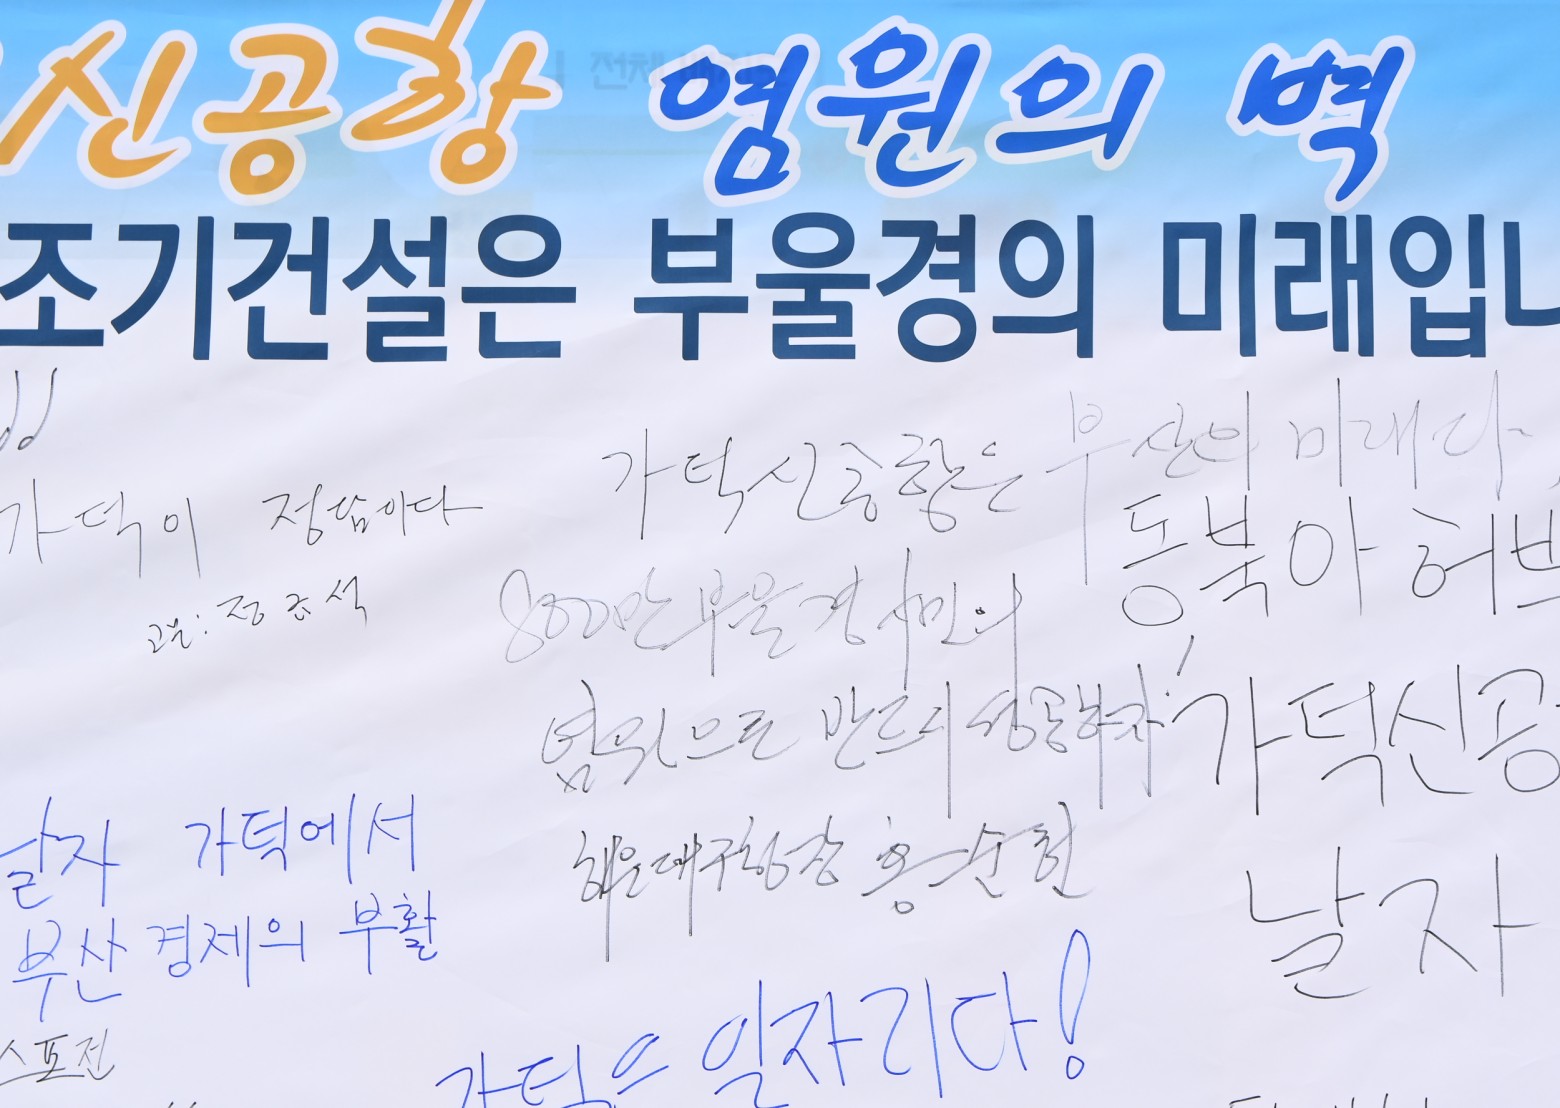 신공항 염원의 벽
조기건설은 부울경의 미래입니
가덕이 정답이다
가덕신공항은 부산의 미래다
동북아 허브
800만 부울경 시민의
염원으로 반드시 성공하자!
가덕신공
해운대구청장 홍순헌
날자
날자 가덕에서
부산 경제의 부활
가덕은 일자리다!